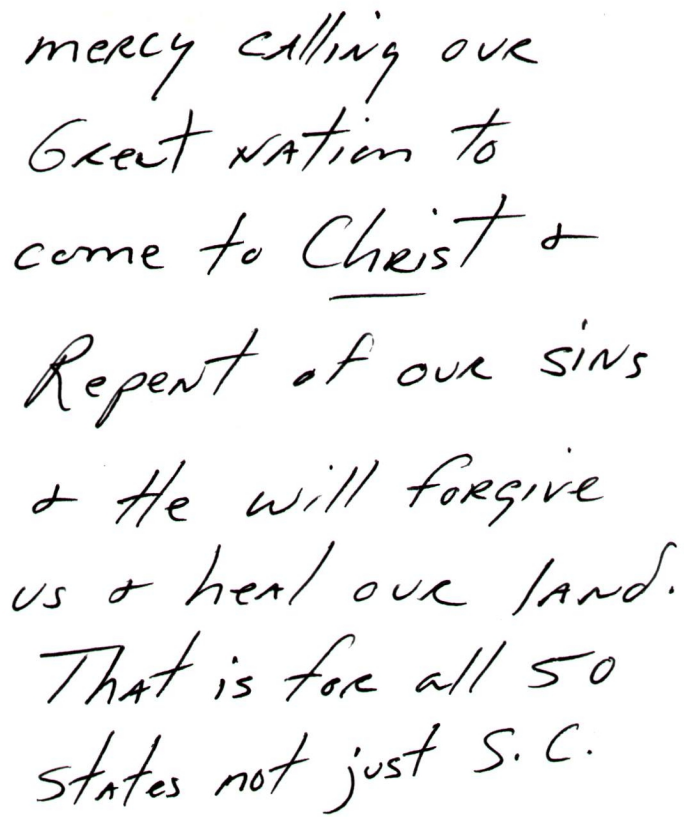 mercy calling our
Great Nation to
come to Christ &
Repent of our sins
& He will forgive
us & heal our land.
That is for all 50
States not just S.C.